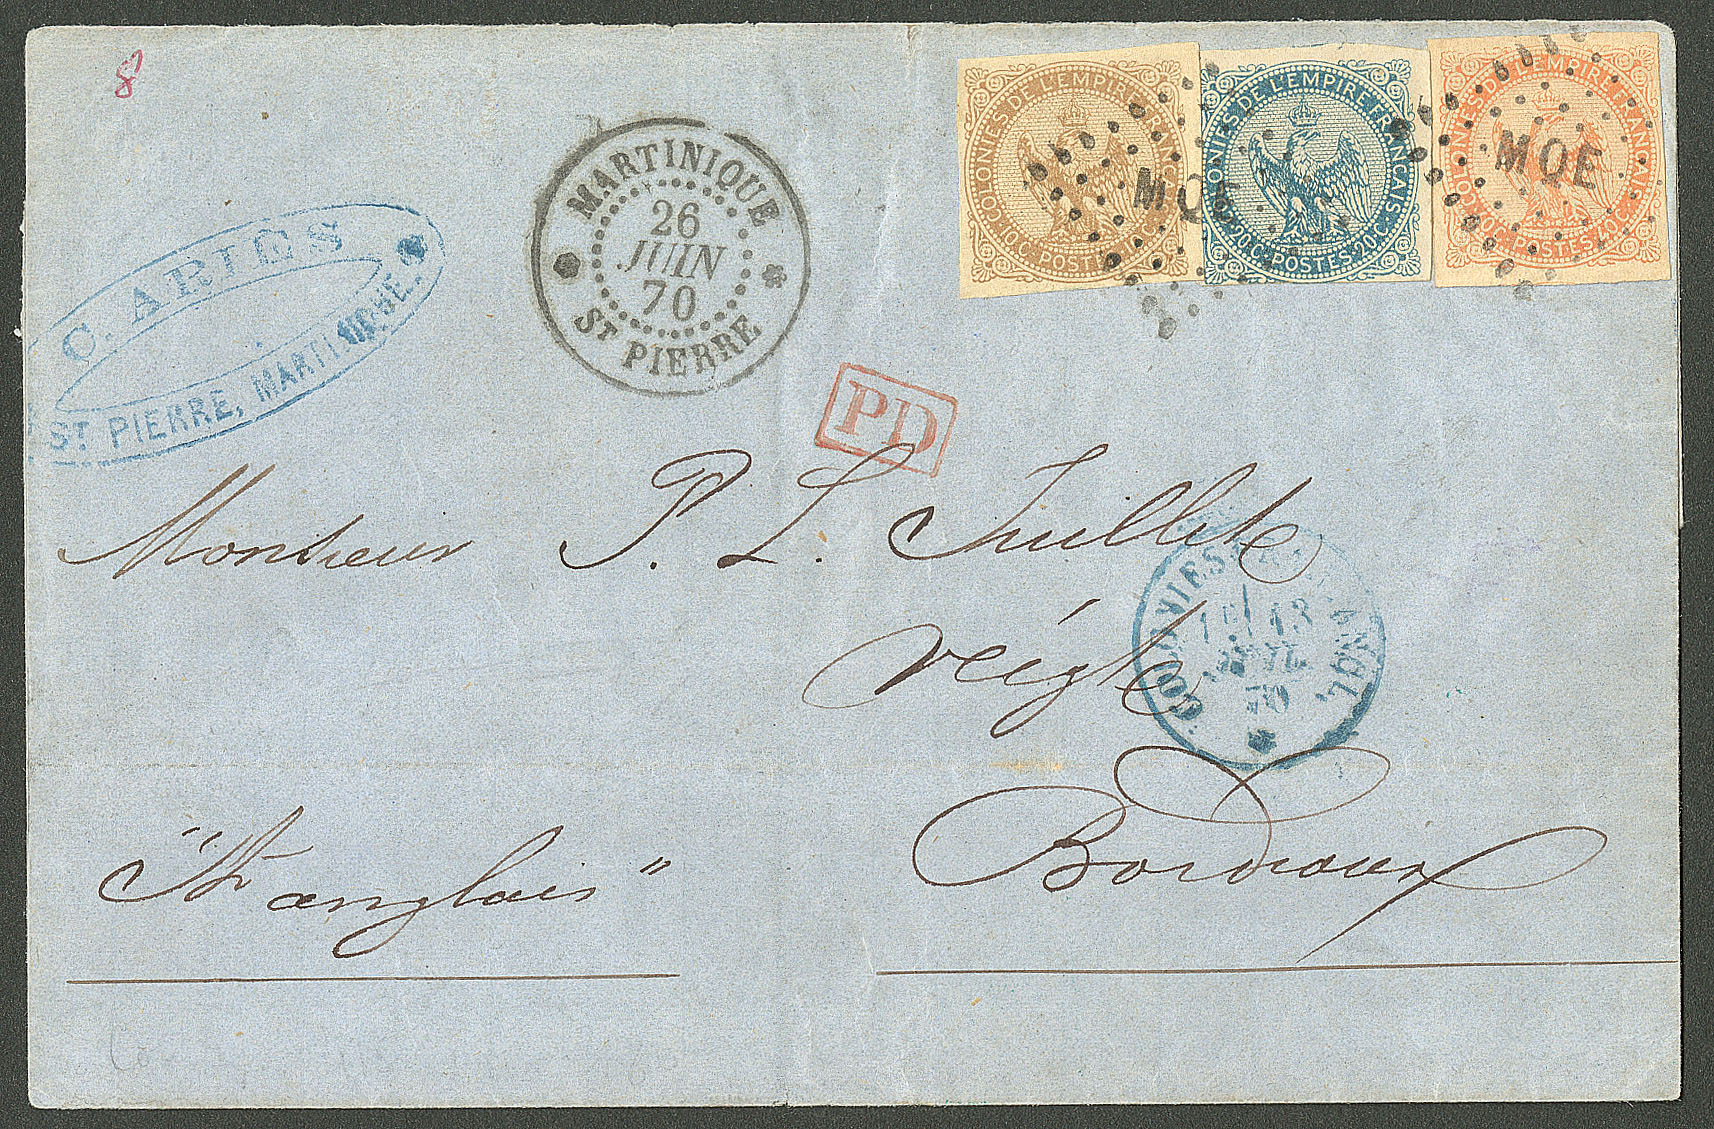 8
COLONIES DE L'EMPIRE FRANÇAIS
10C. POSTES 10C.
COLONIES DE L'EMPIRE FRANÇAIS
20C. POSTES 20C.
COLONIES DE L'EMPIRE FRANÇAIS
40C. POSTES 40C.
MQE
MQE
MARTINIQUE
26
JUIN
70
ST PIERRE
C. ARIES
ST PIERRE, MARTINIQUE.
PD
Monsieur P. L.
COLONIES
13
70
Bordeaux
anglais"